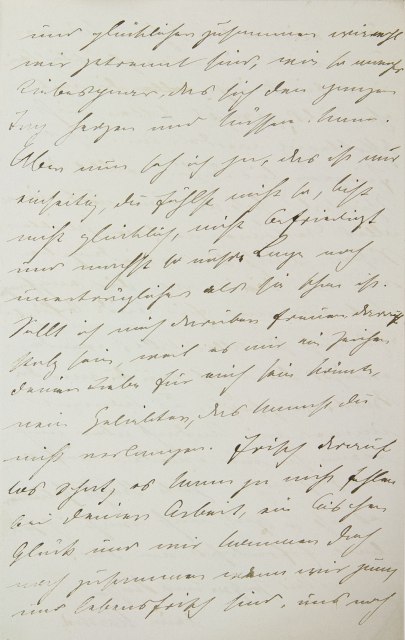 und glücklicher zusammen wie wenn
wir getrennt sind, wie so manches
Liebespaar, das sich den ganzen
Tag herzen und küssen kann.
Aber nun seh ich ja, das ist nur
einseitig, du fühlst nicht so, bist
nicht glücklich, nicht befriedigt
und machst so unsre Lage noch
unerträglicher als sie schon ist.
Sollt ich mich darüber freuen darauf
stolz sein, weil es mir ein Zeichen
deiner Liebe für mich sein könnte,
nein Geliebter, das kannst du
nicht verlangen. Frisch darauf
los, es kann ja nicht fehlen
bei deiner Arbeit, ein bischen
Glück und wir kommen doch
noch zusammen wenn wir jung
und lebensfrisch sind, und noch